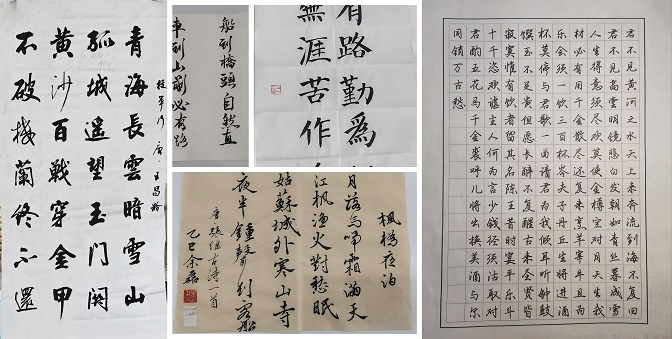 青海長雲暗雪山
孤城遥望玉門関
黄沙百戰穿金甲
不破楼蘭終不還
從軍行 唐 王昌龄
船到橋頭自然直
車到山前必有路
有路勤為
無涯苦作
楓橋夜泊
月落烏啼霜滿天
江楓漁火對愁眠
姑蘇城外寒山寺
夜半鐘聲到客船
唐張继古詩一首
乙巳余磊
君不见黄河之水天上来奔流到海不复回
君不见高堂明镜悲白发朝如青丝暮成雪
人生得意须尽欢莫使金樽空对月天生我
材必有用千金散尽还复来烹羊宰牛且为
乐会须一饮三百杯岑夫子丹丘生将进酒
杯莫停与君歌一曲请君为我倾耳听钟鼓
馔玉不足贵但愿长醉不复醒古来圣贤皆
寂寞惟有饮者留其名陈王昔时宴平乐斗
十千恣欢谑主人何为言少钱径须沽取对
君酌五花马千金裘呼儿将出换美酒与尔
同销万古愁